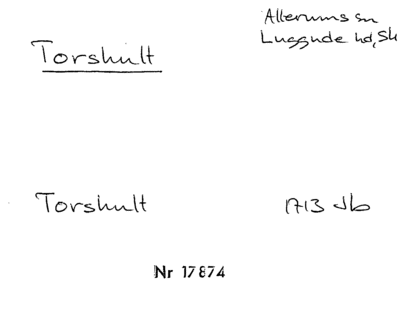 Allerums sn
Luggude hd, Sk
Torshult
Torshult 1713 Jb
Nr 17874